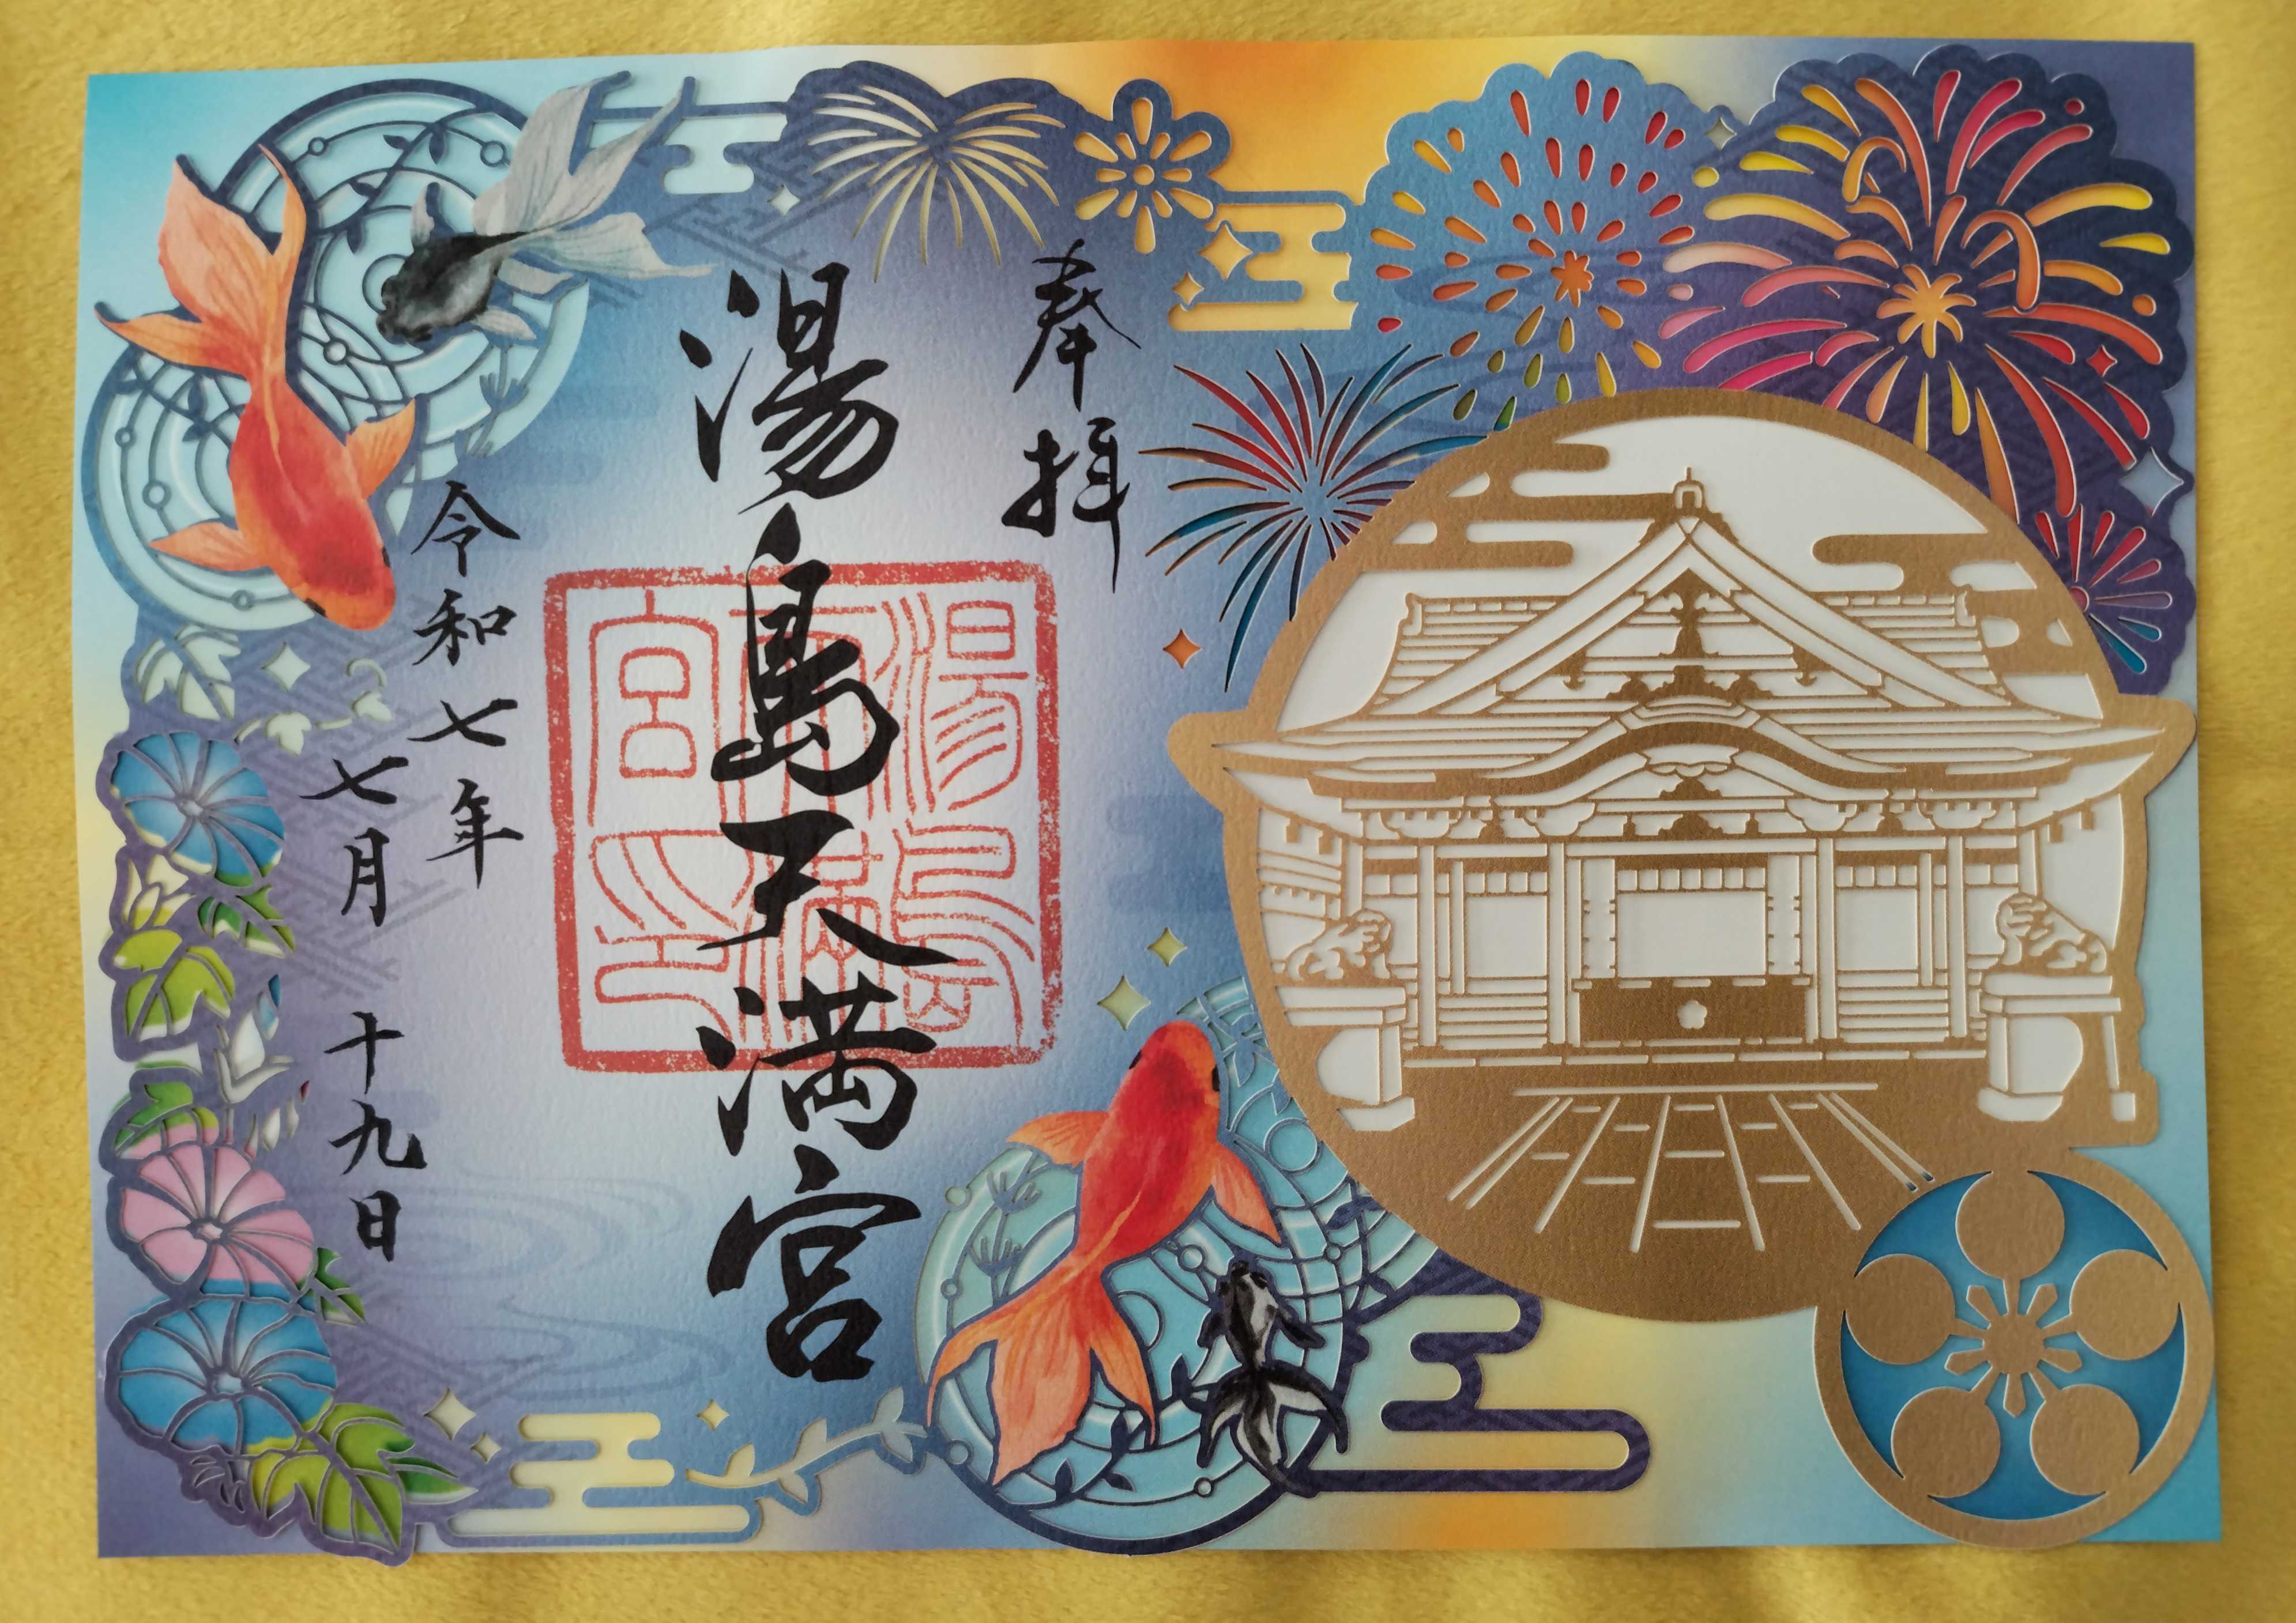 奉拝
湯島天満宮
湯島天満宮印
令和七年
七月十九日